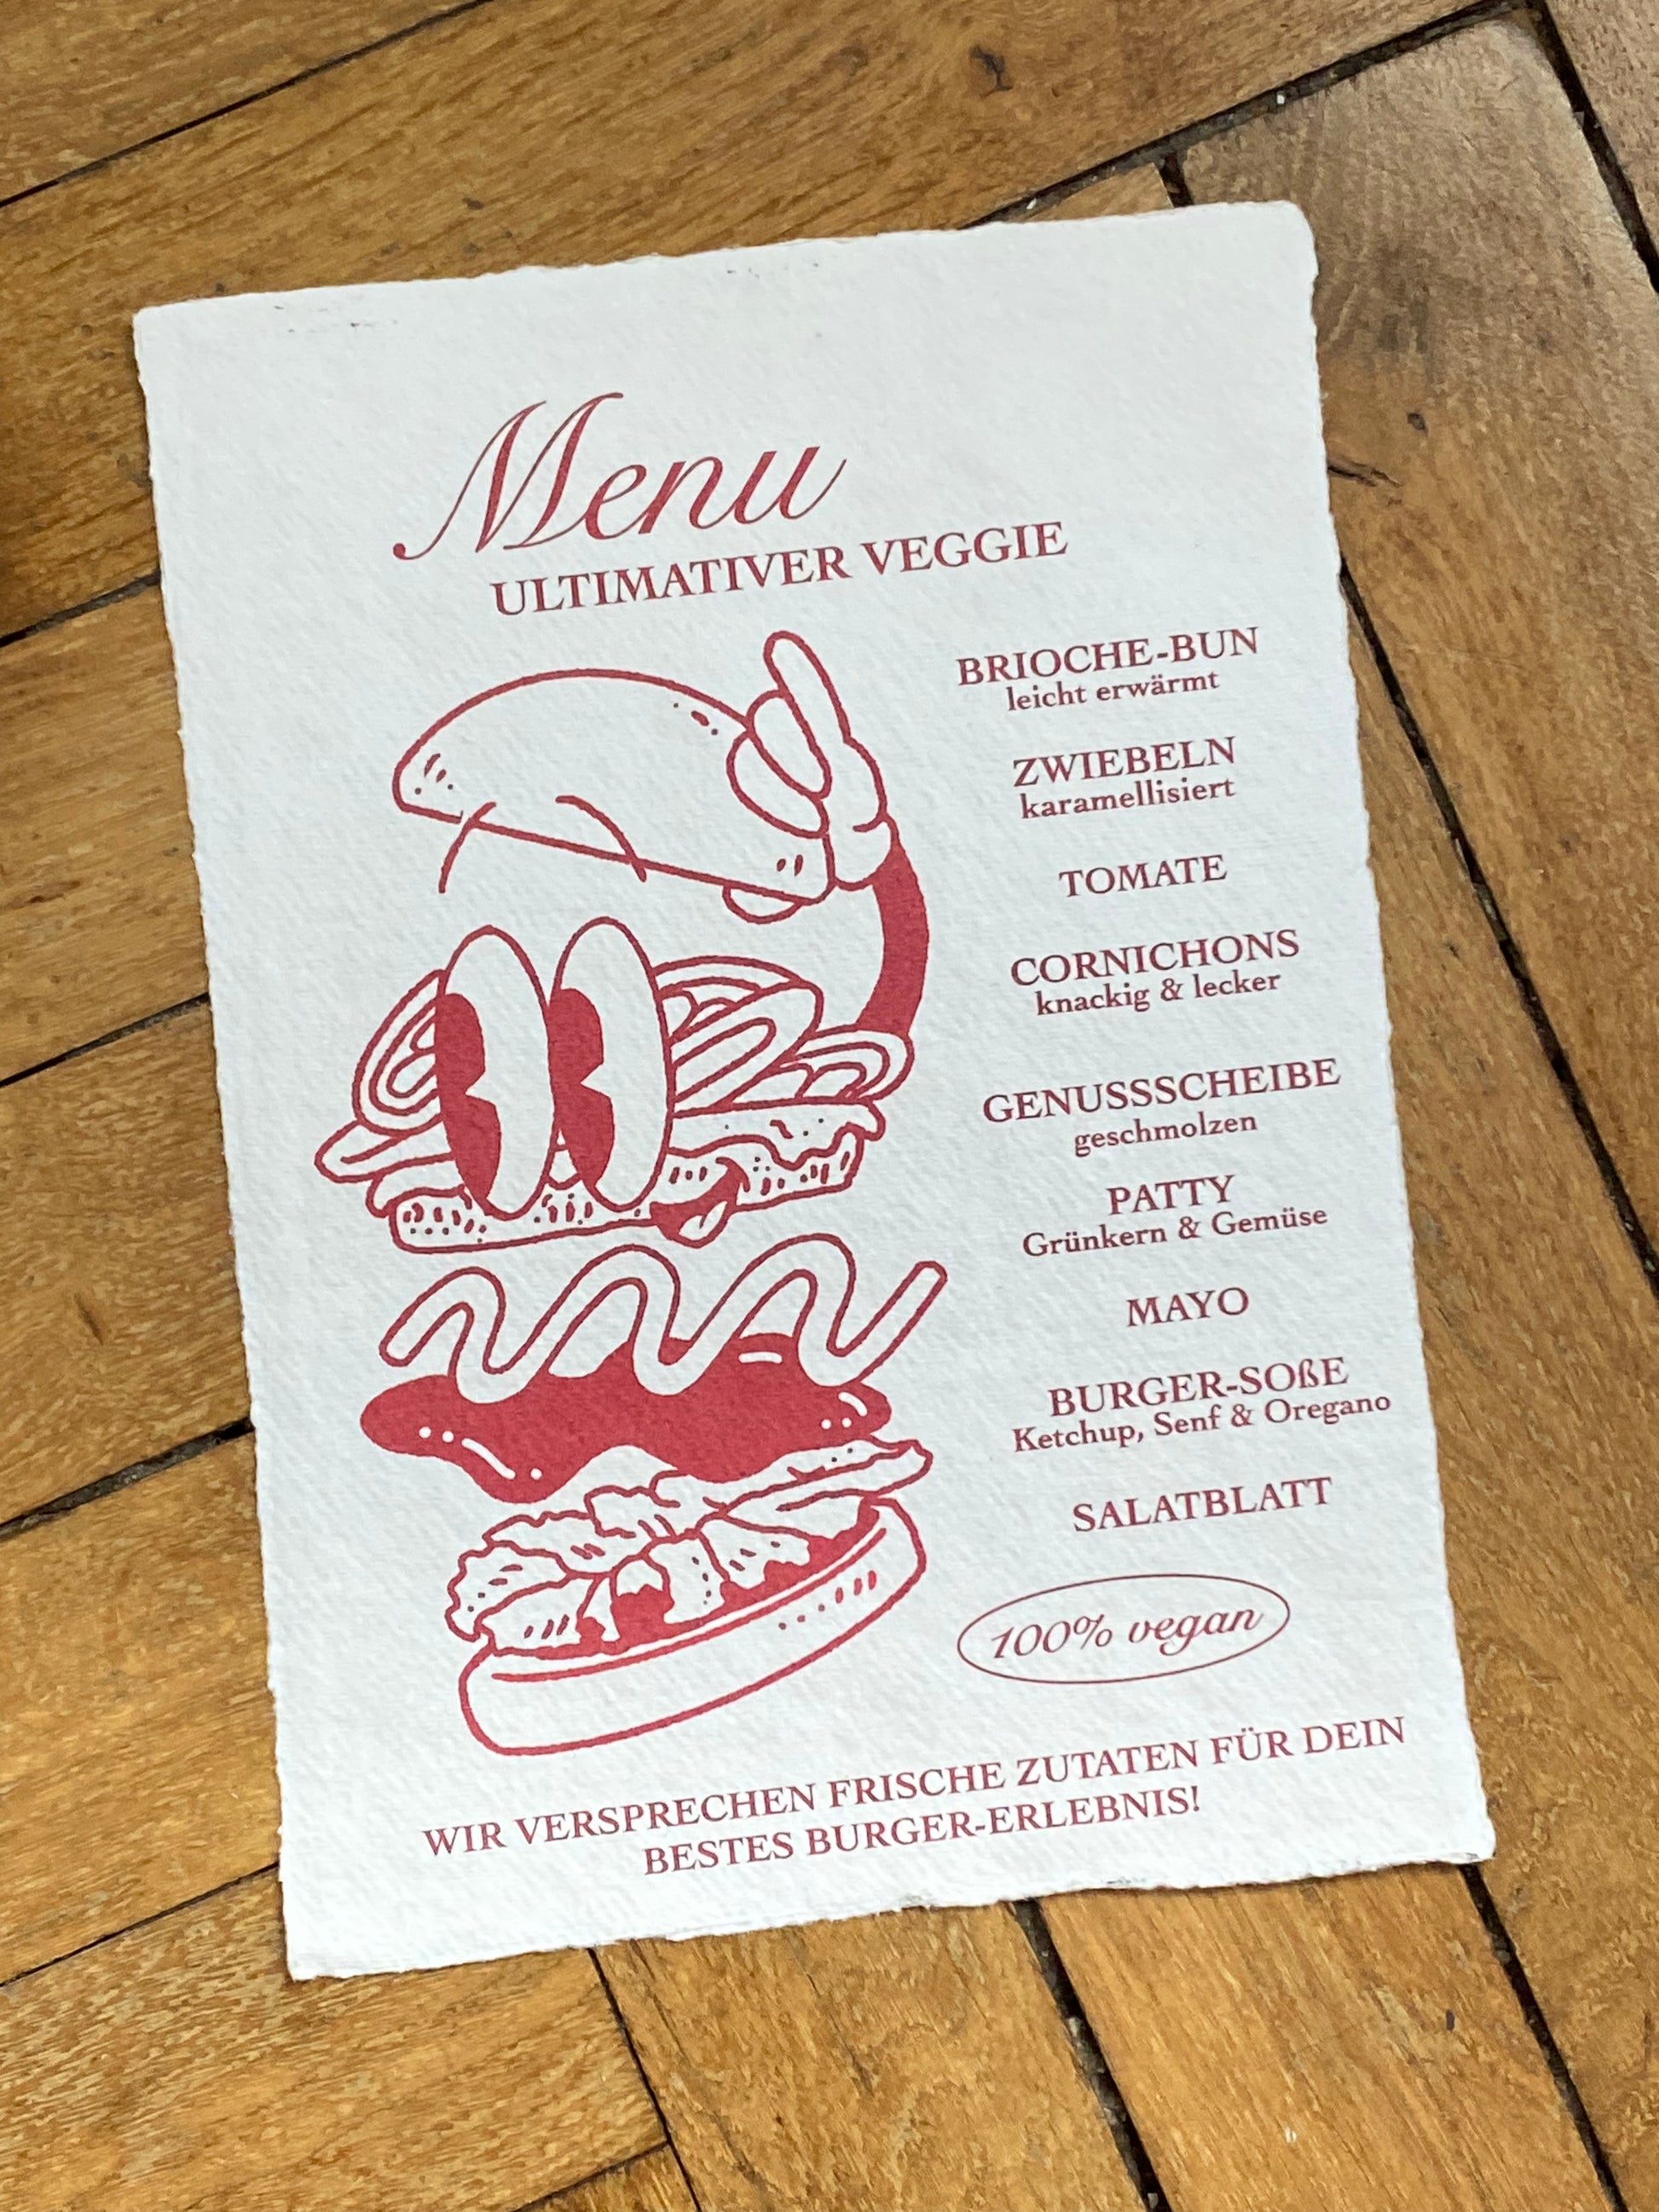 Menu
ULTIMATIVER VEGGIE
BRIOCHE-BUN
leicht erwärmt
ZWIEBELN
karamellisiert
TOMATE
CORNICHONS
knackig & lecker
GENUSSSCHEIBE
geschmolzen
PATTY
Grünkern & Gemüse
MAYO
BURGER-SOßE
Ketchup, Senf & Oregano
SALATBLATT
100% vegan
WIR VERSPRECHEN FRISCHE ZUTATEN FÜR DEIN
BESTES BURGER-ERLEBNIS!